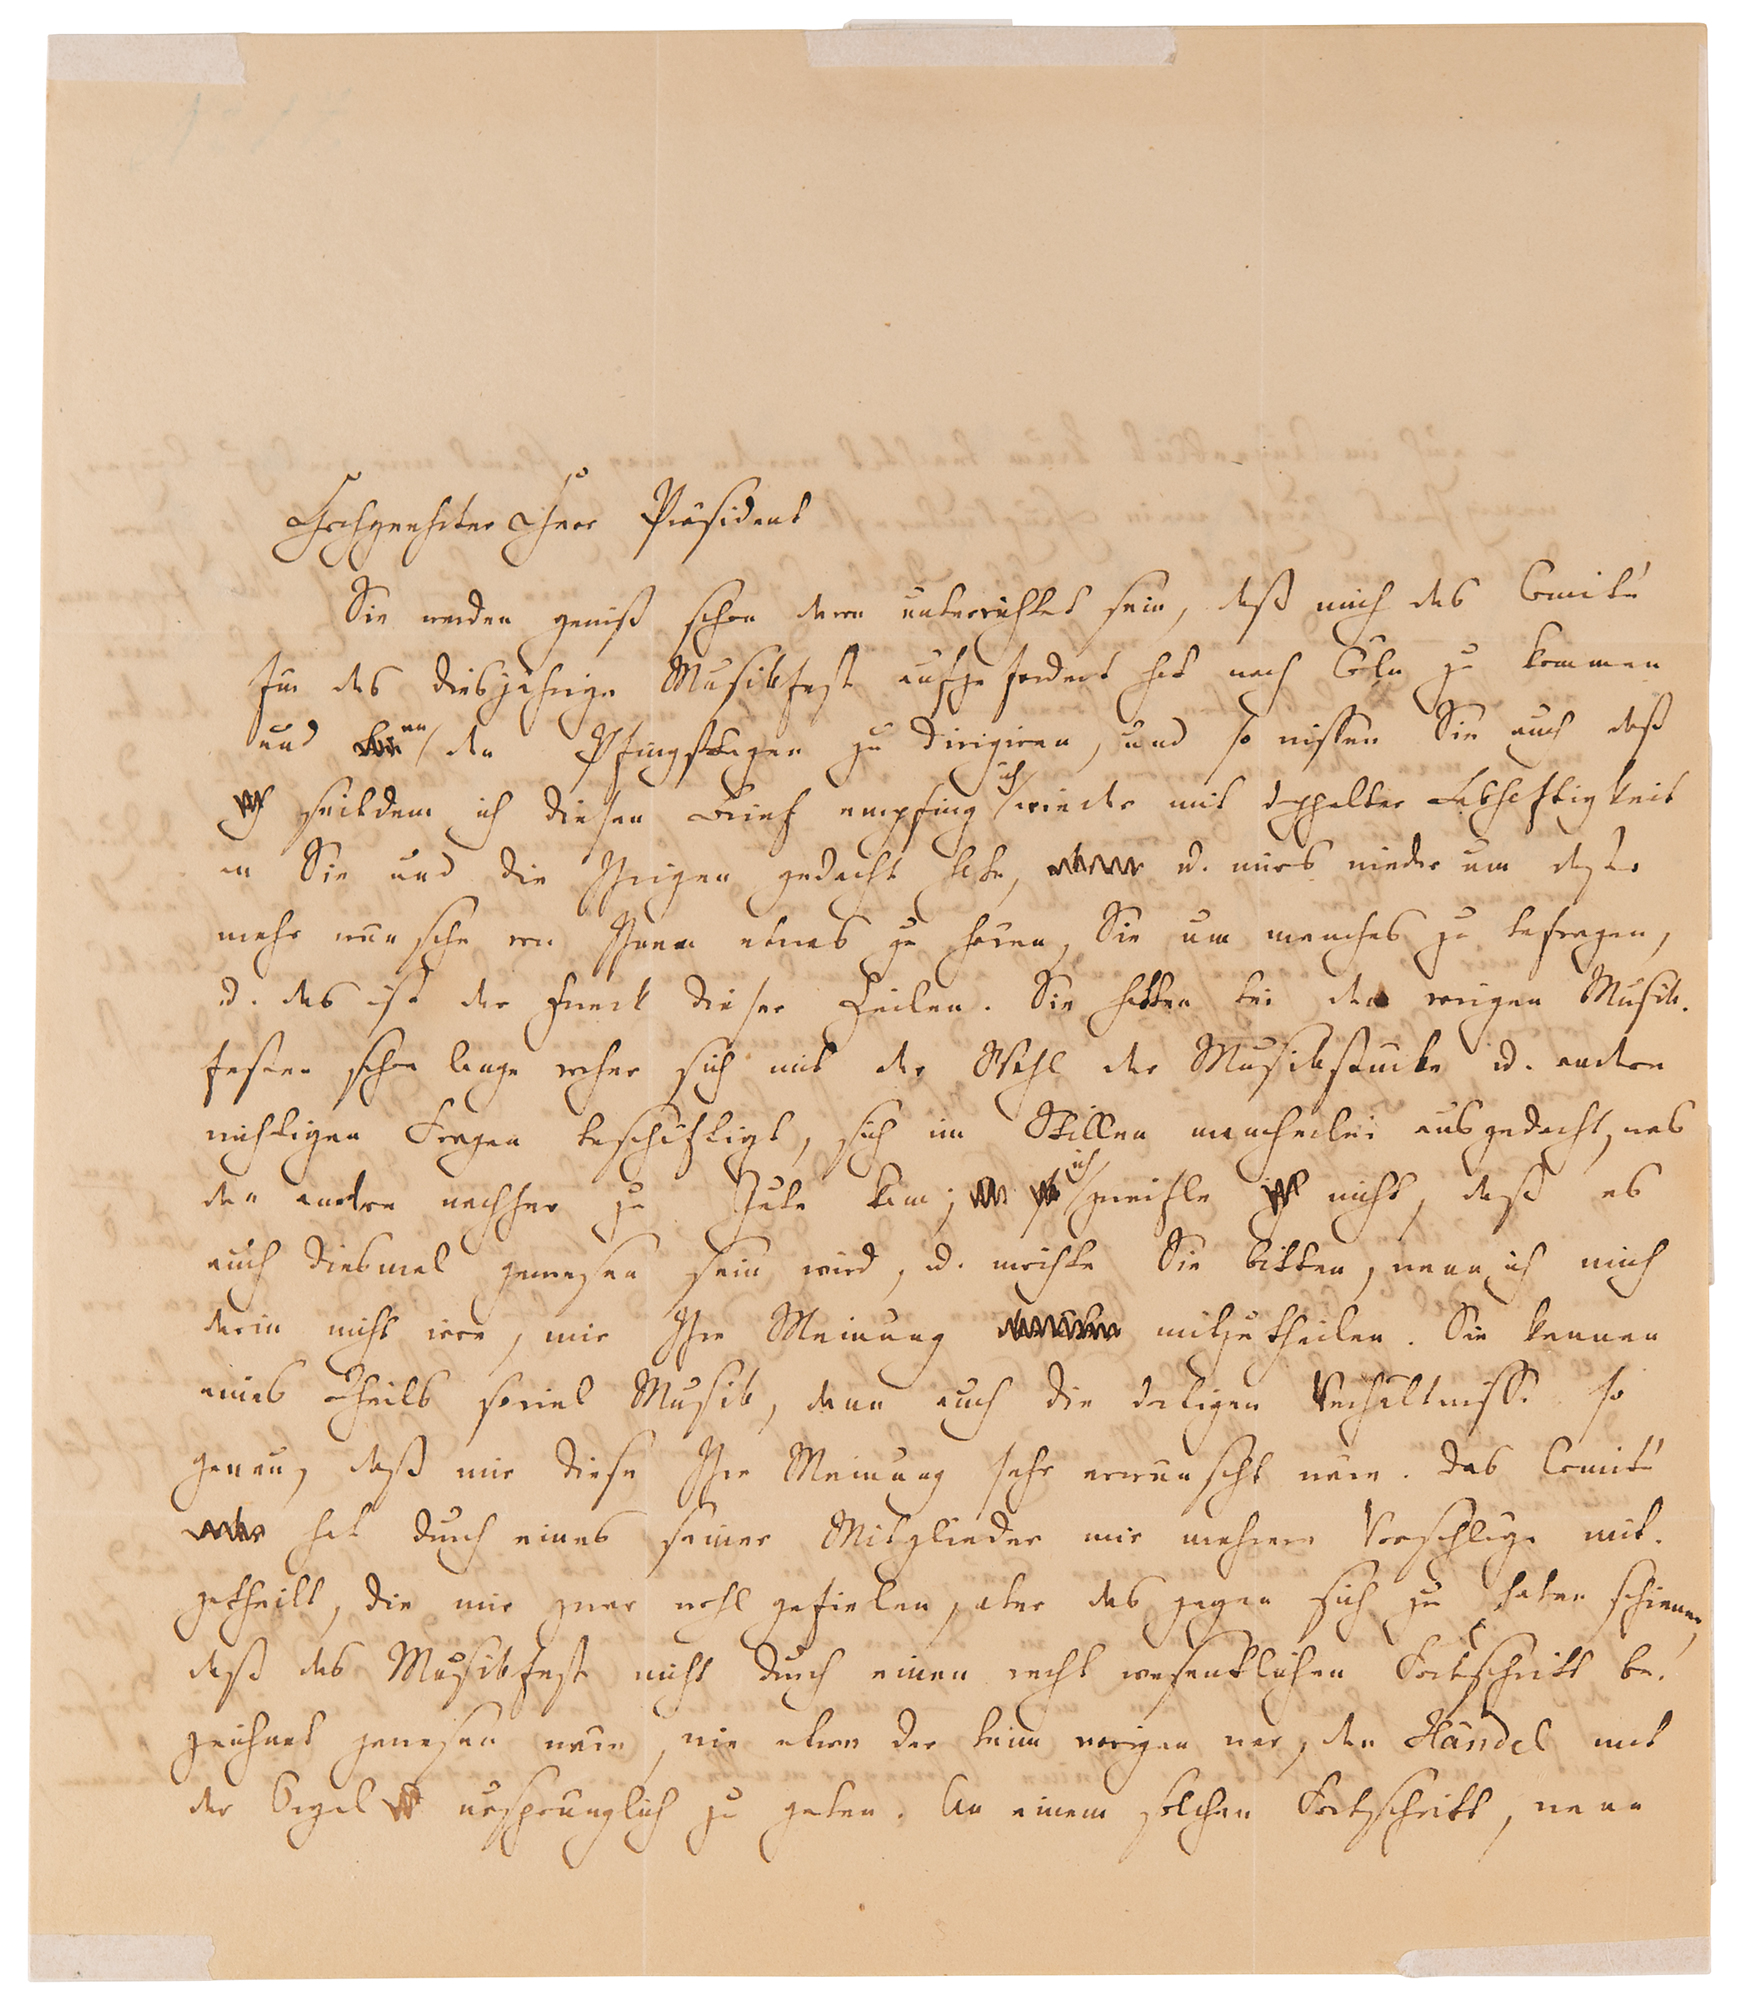 Hochgeehrter Herr Präsident
Sie werden gewiß schon davon unterrichtet sein, daß mich das Comité
für das diesjährige Musikfest aufgefordert hat nach Cöln zu kommen
und an den Pfingsttagen zu dirigiren, und so wissen Sie auch daß
seitdem ich diesen Brief empfing ich wieder mit doppelter Lebhaftigkeit
an Sie und die Ihrigen gedacht habe, u. mirs wieder um desto
mehr wünsche von Ihnen etwas zu hören, Sie um manches zu befragen,
u. das ist der Zweck dieser Zeilen. Sie hatten bei den vorigen Musik-
festen schon lange vorher sich mit der Wahl der Musikstücke u. andern
wichtigen Fragen beschäftigt, sich im Stillen mancherlei ausgedacht, was
den andern nachher zu Gute kam; ich zweifle nicht, daß es
auch diesmal gewesen sein wird, u. möchte Sie bitten, wenn ich mich
darin nicht irre, mir Ihre Meinung mitzutheilen. Sie kennen
eines Theils soviel Musik, dann auch die dortigen Verhältnisse so
genau, daß mir diese Ihre Meinung sehr erwünscht wäre. Das Comité
hat durch eines seiner Mitglieder mir mehrere Vorschläge mit-
getheilt, die mir zwar wohl gefielen, aber das gegen sich zu haben schienen,
daß das Musikfest nicht durch einen recht wesentlichen Fortschritt be-
zeichnet gewesen wäre, wie etwa der beim vorigen war, den Händel mit
der Orgel ursprünglich zu geben. An einem solchen Fortschritt, wenn